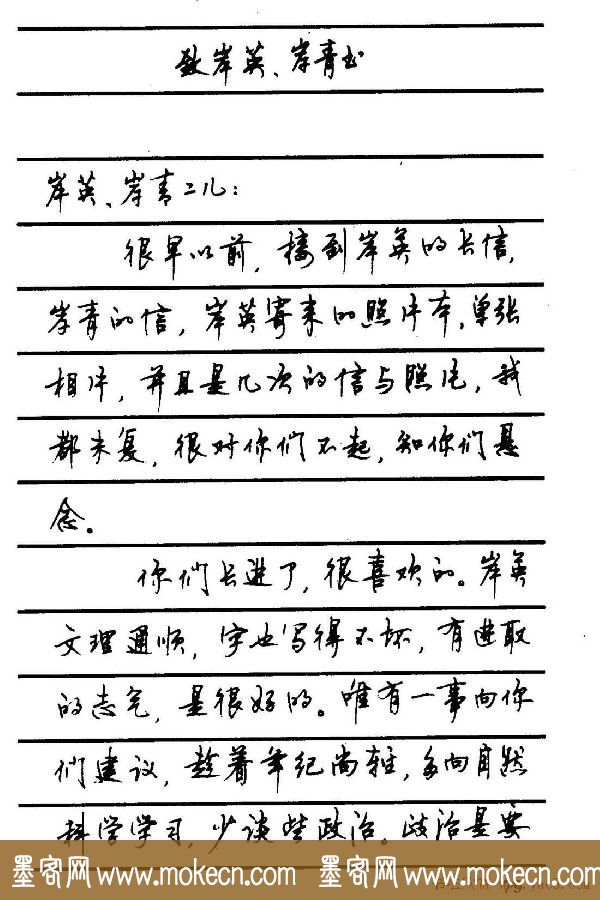 致岸英、岸青书
岸英、岸青二儿：
很早以前，接到岸英的长信，
岸青的信，岸英寄来的照片本，单张
相片，并且是几次的信与照片，我
都未复，很对你们不起，知你们悬
念。
你们长进了，很喜欢的。岸英
文理通顺，字也写得不坏，有进取
的志气，是很好的。唯有一事向你
们建议，趁着年纪尚轻，多向自然
科学学习，少谈些政治。政治是要
墨客网 www.mokecn.com 墨客网 www.mokecn.com